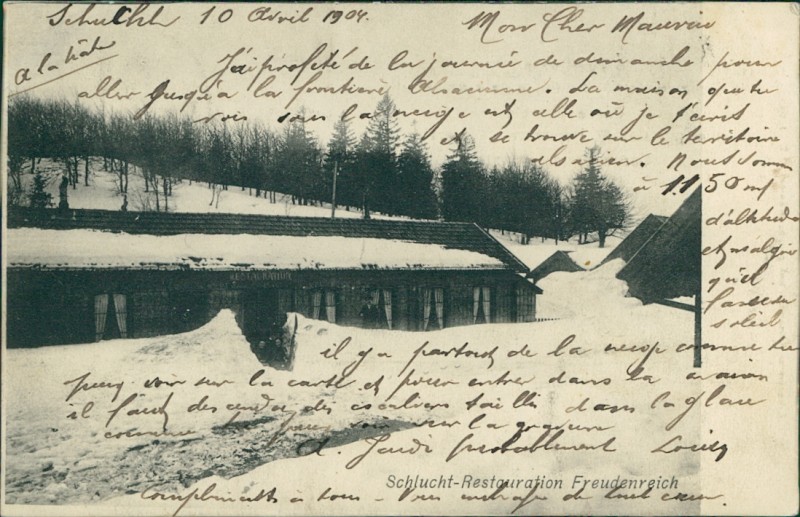 Schlucht 10 Avril 1904.
à la hâte
Mon Cher Maurice
J'ai profité de la journée de dimanche pour
aller jusqu'à la frontière Alsacienne. La maison que tu
vois sous la neige est celle où je t'écris
et se trouve sur le territoire
alsacien. Nous sommes
à 1150 m
d'altitude
et malgré
qu'il
fasse du
soleil
il y a partout de la neige comme tu
peux voir sur la carte et pour entrer dans la maison
il faut descendre des escaliers taillés dans la glace
comme tu peux voir sur la gravure
à Jeudi probablement Louis
RESTAURATION
Schlucht-Restauration Freudenreich
Compliments à tous - de tout cœur.